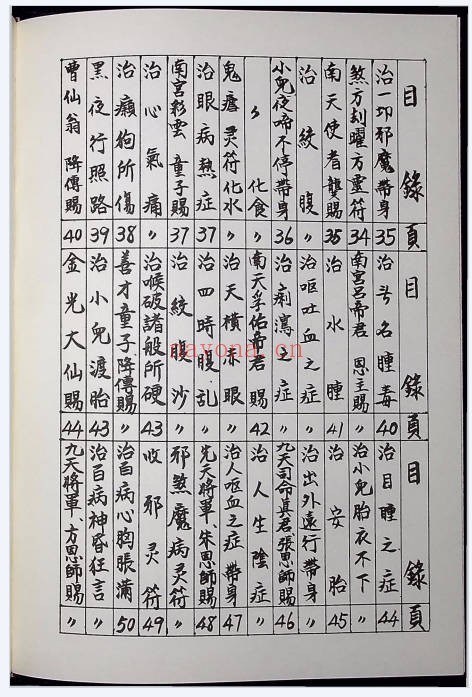 目錄 頁
治一切邪魔帶身 35
煞方刦曜方靈符 34
南天使者龍賜 35
治絞腹 〃
小兒夜啼不停帶身 36
〃 化食 〃
鬼瘧灵符化水 〃
治眼病熱症 37
南宮彩雲童子賜 37
治心氣痛 〃
治癲狗所傷 38
黑夜行照路 39
曹仙翁 降傳賜 40
目錄 頁
治头名腫毒 40
南宮呂帝君 恩主賜 〃
治水腫 41
治嘔吐血之症 〃
治痢瀉之症 〃
南天孚佑帝君賜 42
治天横赤眼 〃
治四時腹乱 〃
治絞腸沙 〃
治喉破諸般所硬 43
善才童子降傳賜 〃
治小兒渡胎 43
金光大仙賜 44
目錄 頁
治目腫之症 44
治小兒胎衣不下 〃
治安胎 45
治出外遠行帶身 〃
九天司命真君張恩師賜 46
治人生陰症 〃
治人嘔血之症帶身 47
先天將軍、朱恩師賜 48
邪煞魔病灵符 〃
收邪灵符 49
治百病心胸脹滿 50
治百病神昏狂言 〃
九天將軍、方恩師賜 〃
nayona.cn